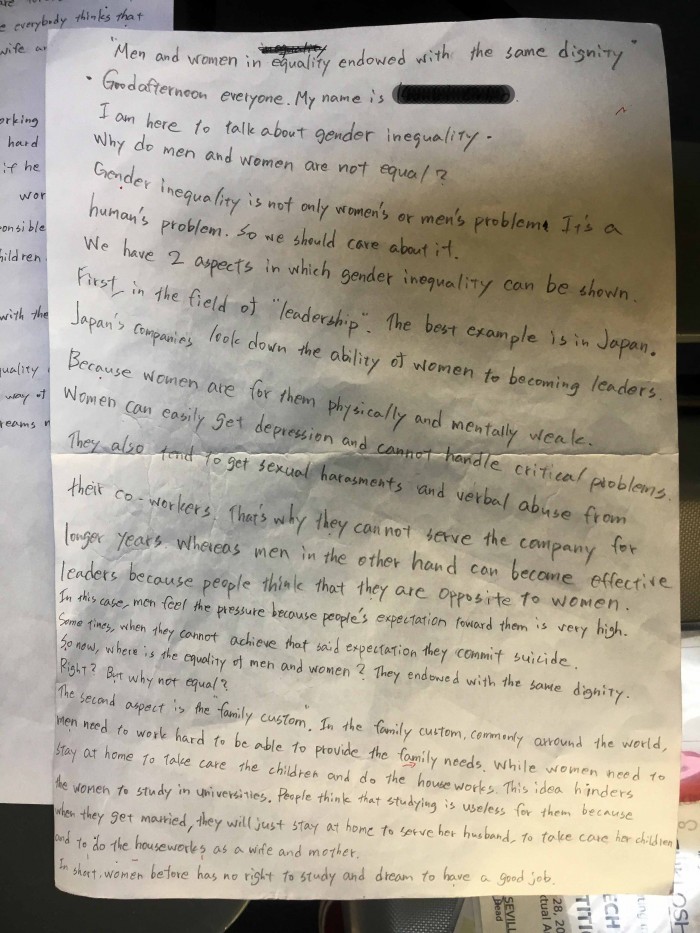 e everybody thinks that
wife an
orking
hard
if he
wor
onsible
hildren
with the
quality
way of
reams
"Men and women in equality endowed with the same dignity"
• Good afternoon everyone. My name is
I am here to talk about gender inequality.
Why do men and women are not equal?
Gender inequality is not only women's or men's problem. It's a
human's problem. So we should care about it.
We have 2 aspects in which gender inequality can be shown.
First, in the field of "leadership". The best example is in Japan.
Japan's companies look down the ability of women to becoming leaders.
Because women are for them physically and mentally weak.
Women can easily get depression and cannot handle critical problems.
They also tend to get sexual harasments and verbal abuse from
their co-workers. That's why they cannot serve the company for
longer years. Whereas men in the other hand can become effective
leaders because people think that they are opposite to women.
In this case, men feel the pressure because people's expectation toward them is very high.
Some times, when they cannot achieve that said expectation they commit suicide.
So now, where is the equality of men and women? They endowed with the same dignity.
Right? But why not equal?
The second aspect is the "family custom". In the family custom, commonly arround the world,
men need to work hard to be able to provide the family needs. While women need to
stay at home to take care the children and do the house works. This idea hinders
the women to study in universities. People think that studying is useless for them because
when they get married, they will just stay at home to serve her husband, to take care her children
and to do the houseworks as a wife and mother.
In short, women before has no right to study and dream to have a good job.
SEVILL
Dead
28, 20
ctual A
TITI
ECH
OSH